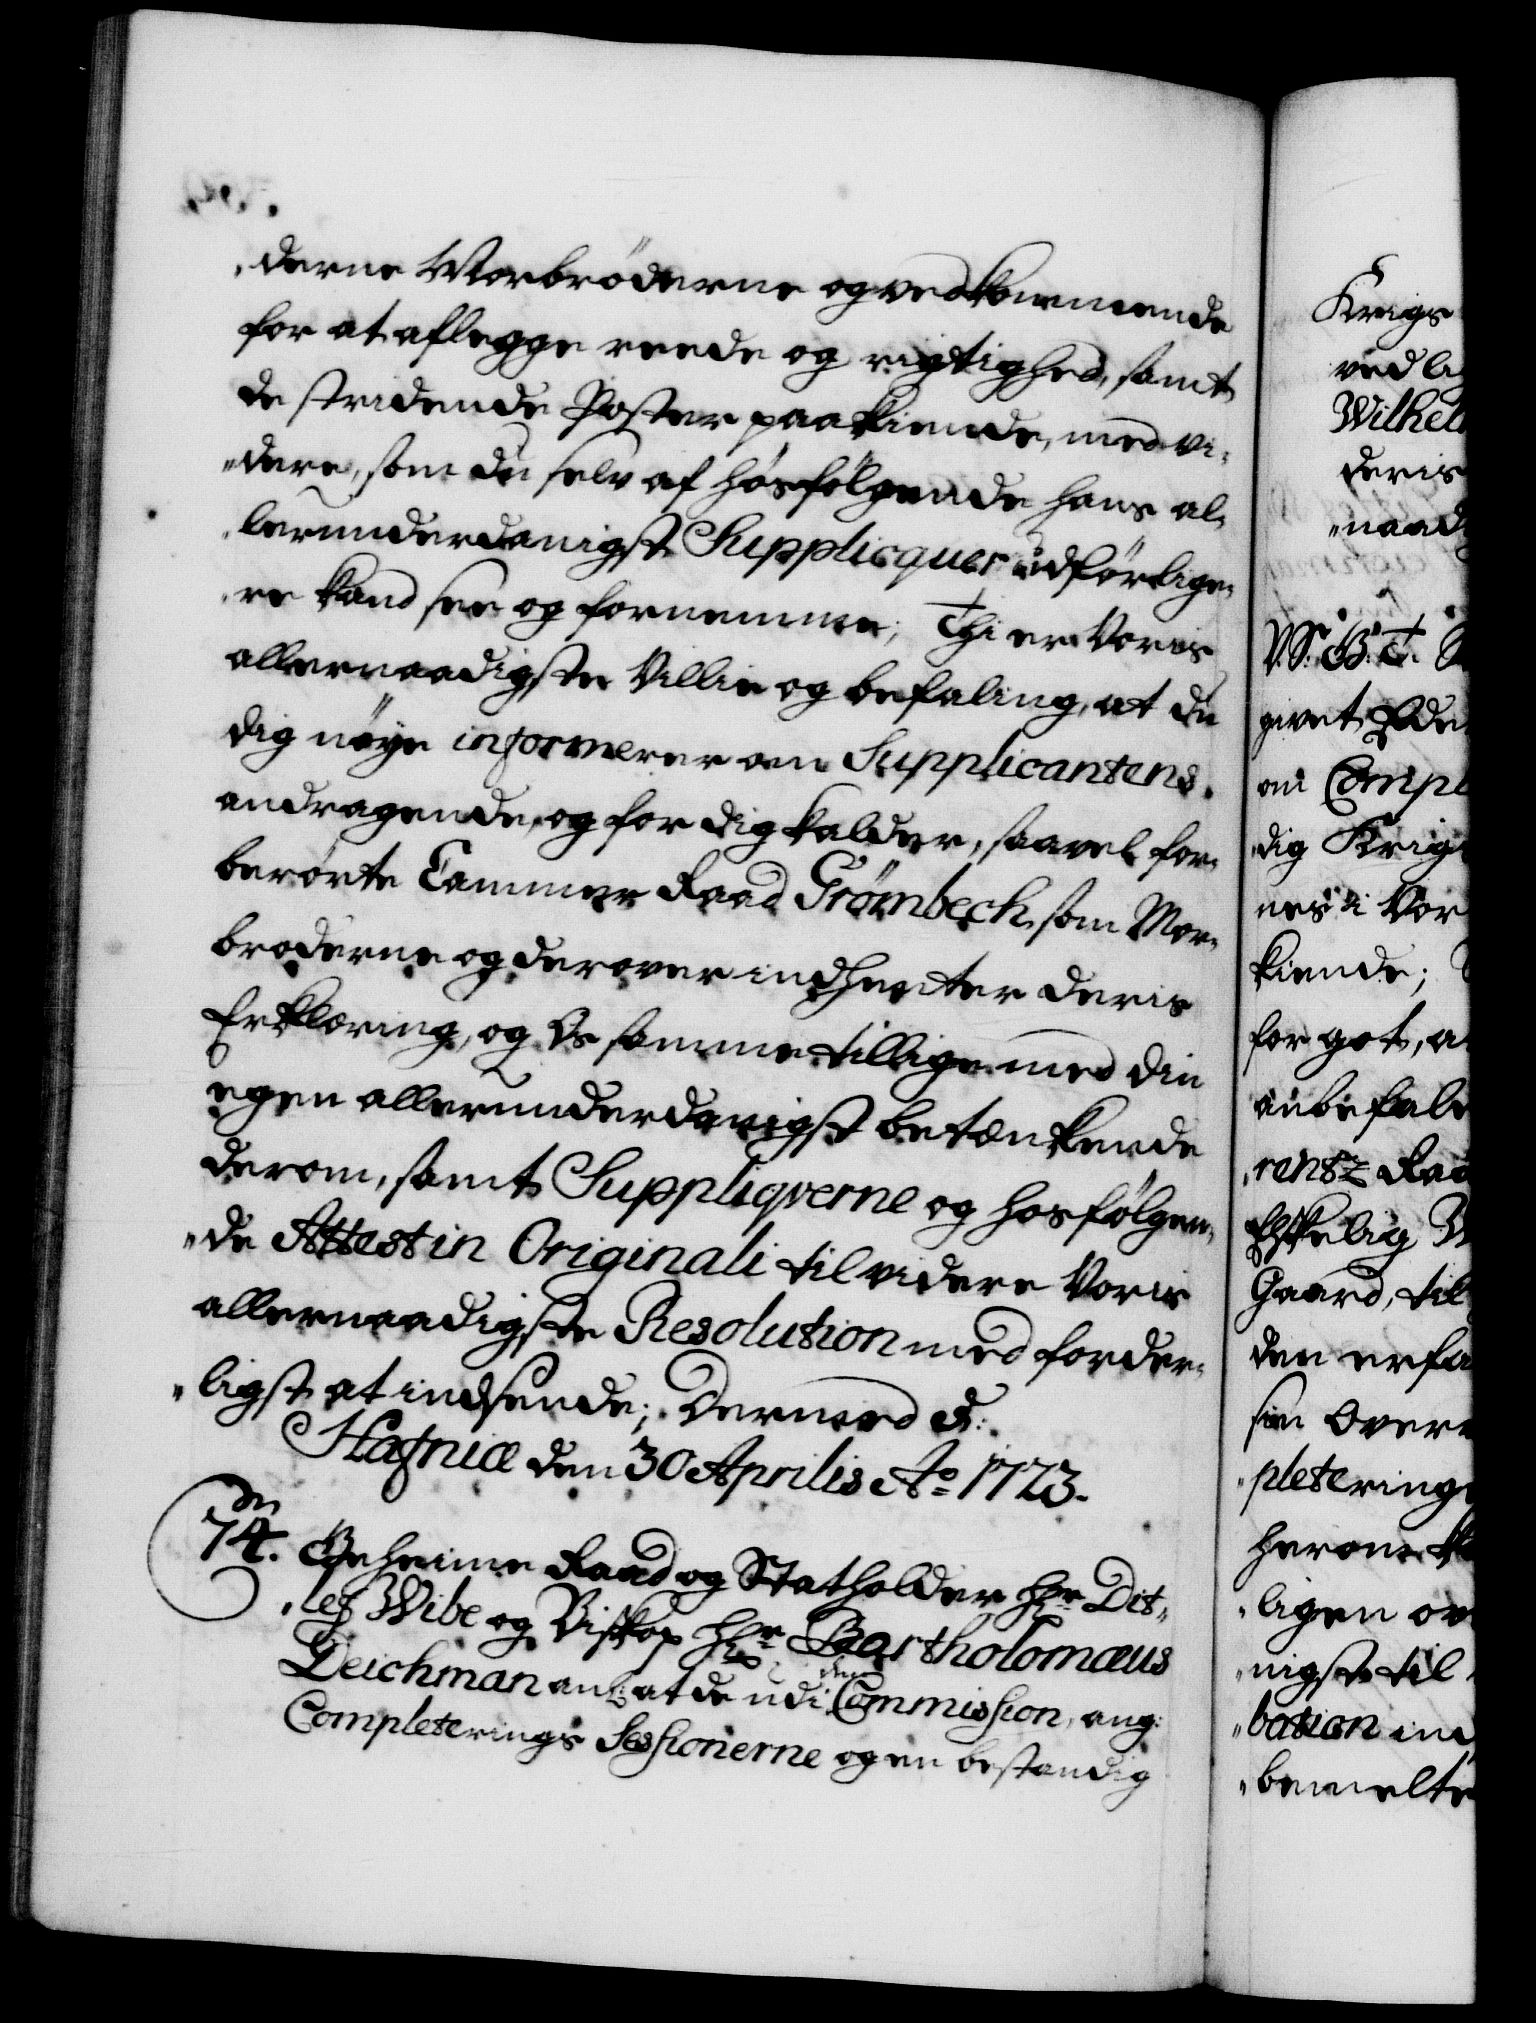 „derne Morbrøderne og vedkommende
for at aflegge reede og rigtighed, samt
de stridende Poster paakiende, med vi„
„dere, som du selv af hosfølgende hans al„
„lerunderdanigst Supplicquer udførlige„
„re kand see og fornemme; Thi er Voris
allernaadigste Villie og befaling, at du
dig nøye informerer om Supplicantens
andragende, og for dig kalder, saavel for„
berørte Cammer Raad Grømbech, som Mor„
broderne og derover indhenter deris
Erklæring, og Os samme tillige med din
egen allerunderdanigst betænkende
derom, samt Suppliqverne og hosfølgen„
„de Attest in Originali til videre Voris
allernaadigste Resolution med forder„
„ligst at indsende; Dermed d:
Hafniæ den 30 Aprilis Ao 1723.
74. Geheime Raad og Statholder Hr Dit„
„lef Wibe og Biskop Hr Bartholomæus
Deichman anl: at de udi den Commission, ang:
Completerings Sessionerne og en bestandig
Krigs
ved li
Wilhel
deris
„naad
V. S. G. T.
givet
om Compl
dig Krig
nes i Vor
kiende;
for got, a
anbefale
„rentz Raa
Elskelig W
Gaard, til
den erfa
sin Over
„pletering
herom
„ligen ov
„nigste til
„bation ind
„bemelte